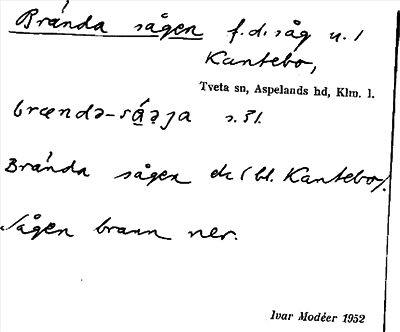 Brända sågen f.d. såg u. 1
Kantebo,
Tveta sn, Aspelands hd, Klm. l.
s. 31.
Brända sågen dc (bl. Kantebo).
Sågen brann ner.
Ivar Modéer 1952